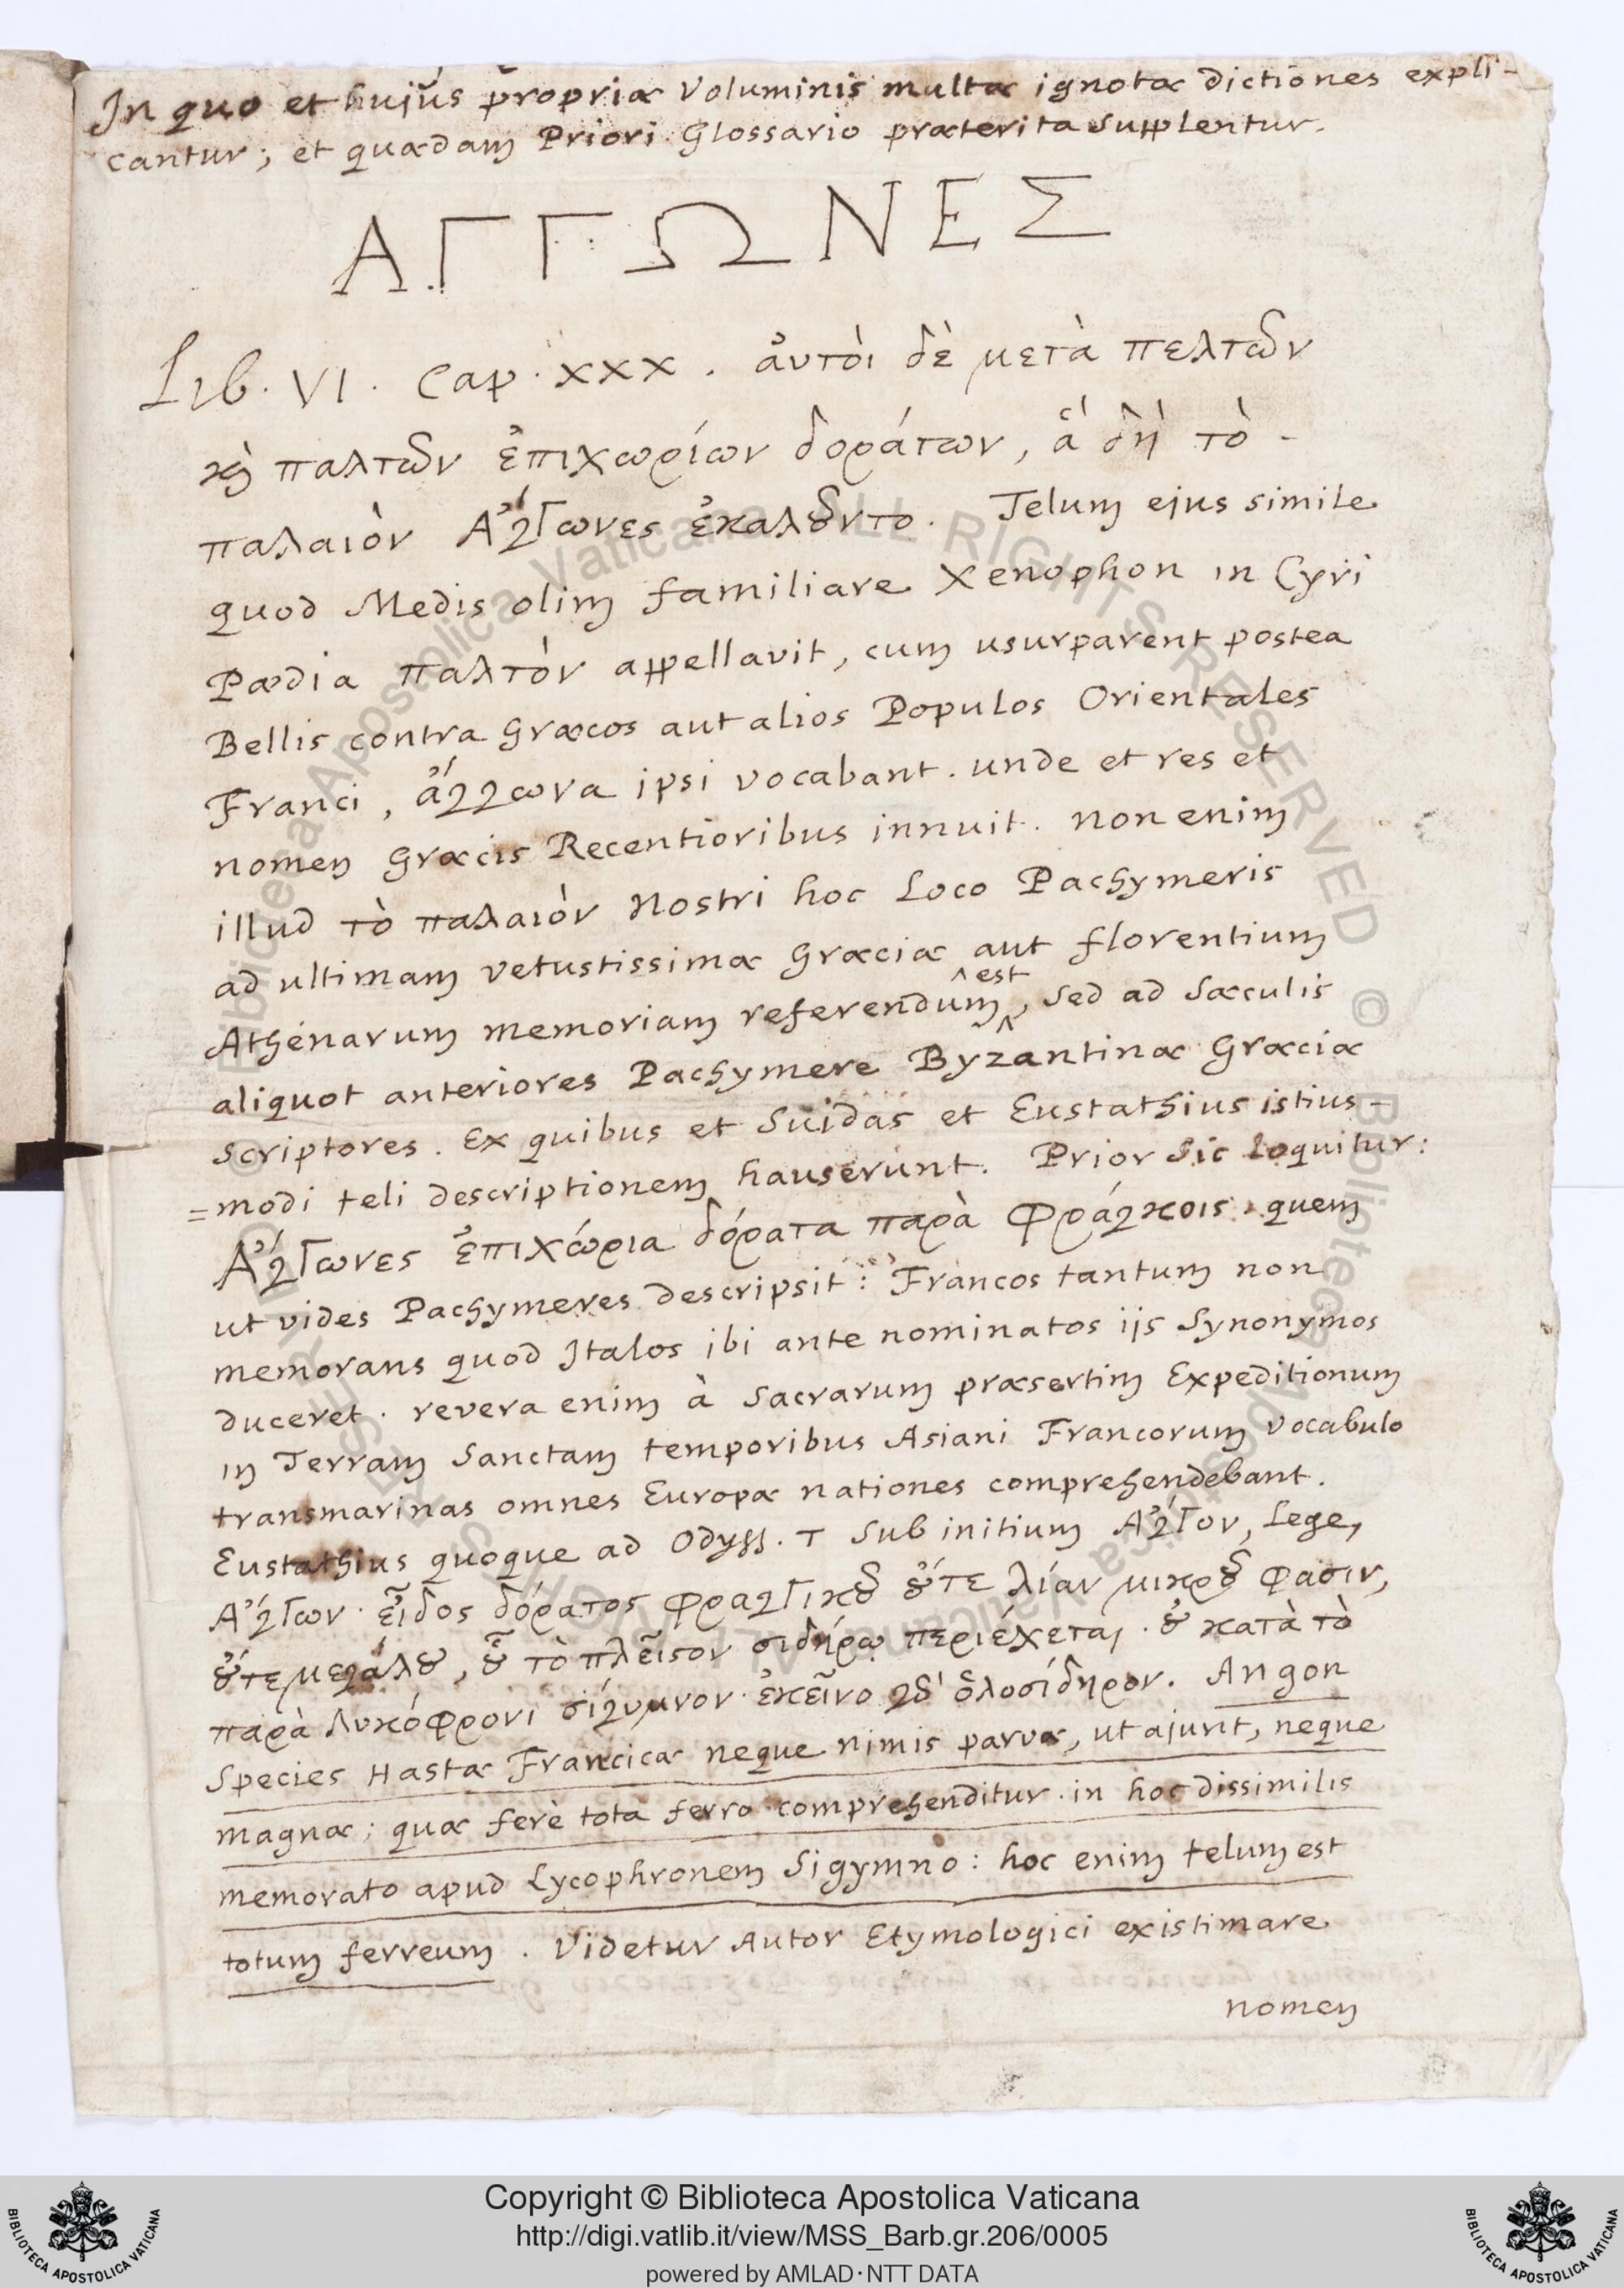 In quo et hujus propriæ Voluminis multæ ignotæ dictiones expli-
cantur; et quædam Priori Glossario præterita supplentur.
ΑΓΓΩΝΕΣ
Lib. VI. Cap. XXX. ἀυτὸι δὲ μετὰ πελτῶν
καὶ παλτῶν ἐπιχωρίων δοράτων, ἃ δὴ τὸ -
παλαιὸν Ἄγγωνες ἐκαλοῦντο. Telum ejus simile
quod Medis olim familiare Xenophon in Cyri
Pædia παλτὸν appellavit, cum usurparent postea
Bellis contra Græcos aut alios Populos Orientales
Franci, ἄγγωνα ipsi vocabant. unde et res et
nomen Græcis Recentioribus innuit. non enim
illud τὸ παλαιὸν Nostri hoc Loco Pachymeris
ad ultimam vetustissimæ Græciæ aut florentium
Athenarum memoriam referendum est, sed ad sæculis
aliquot anteriores Pachymere Byzantinæ Græciæ
scriptores. Ex quibus et Suidas et Eustathius istius-
=modi teli descriptionem hauserunt. Prior sic loquitur:
Ἄγγωνες ἐπιχώρια δόρατα παρὰ Φράγκοις, quem
ut vides Pachymeres descripsit: Francos tantum non
memorans quod Italos ibi ante nominatos iis Synonymos
duceret. revera enim à Sacrarum præsertim Expeditionum
in Terram Sanctam temporibus Asiani Francorum vocabulo
transmarinas omnes Europæ nationes comprehendebant.
Eustathius quoque ad Odyss. τ sub initium Ἄγγον, Lege,
Ἄγγων. εἶδος δόρατος φραγγικοῦ οὔτε λίαν μικροῦ φασιν,
οὔτε μεγάλου, οὗ τὸ πλεῖστον σιδήρῳ περιέχεται. οὐ κατὰ τὸ
παρὰ Λυκόφρονι σίγυμνον. ἐκεῖνο γδ' ὁλοσίδηρον. Angon
Species Hastæ Francicæ neque nimis parvæ, ut ajunt, neque
magnæ; quæ ferè tota ferro comprehenditur. in hoc dissimilis
memorato apud Lycophronem Sigymno: hoc enim telum est
totum ferreum. Videtur Autor Etymologici existimare
nomen
Copyright © Biblioteca Apostolica Vaticana
http://digi.vatlib.it/view/MSS_Barb.gr.206/0005
powered by AMLAD·NTT DATA